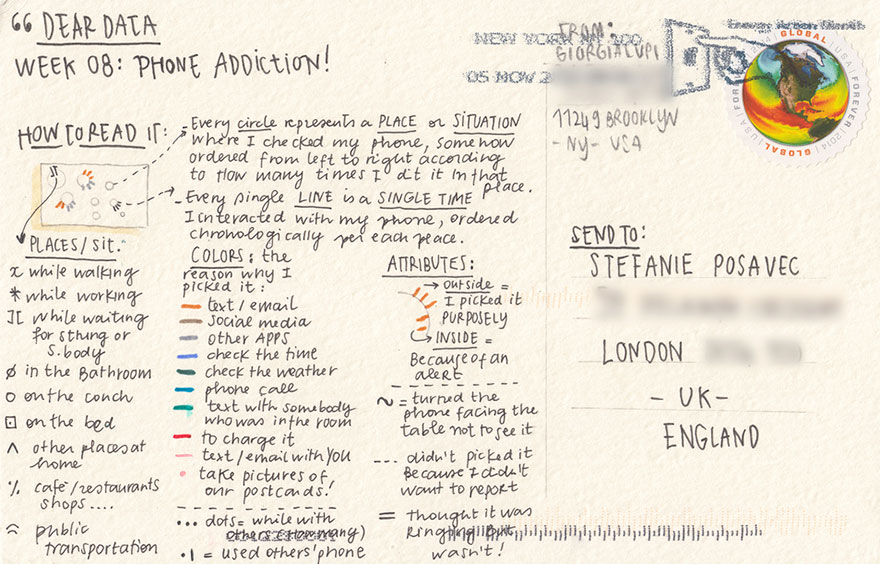 DEAR DATA
WEEK 08: PHONE ADDICTION!
HOW TO READ IT:
Every circle represents a PLACE or SITUATION
where I checked my phone, somehow
ordered from left to right according
to How many times I dit it in that
place.
Every single LINE is a SINGLE TIME
I interacted with my phone, ordered
chronologically per each peace.
PLACES/sit.
x while walking
* while working
][ while waiting
for sthung or
s.body
ø in the Bathroom
o on the couch
⊡ on the bed
^ other places at
home
% café/restaurants
shops....
public
transportation
COLORS: the
reason why I
picked it:
text/email
social media
other APPS
check the time
check the weather
phone call
text with somebody
who was in the room
to charge it
text/email with YOU
take pictures of
our postcards!
... dots = while with
others (How many)
·| = used others' phone
ATTRIBUTES:
outside =
I picked it
PURPOSELY
INSIDE =
Because of an
alert
~ = turned the
phone facing the
table not to see it
--- didn't picked it
Because I didn't
want to report
= thought it was
Ringing But
wasn't!
FROM:
GIORGIA LUPI
11249 BROOKLYN
- NY - USA
NEW YORK NY 100
05 NOV 2
GLOBAL
USA
FOREVER
2014
GLOBAL
USA
FOREVER
SEND TO:
STEFANIE POSAVEC
LONDON
- UK -
ENGLAND